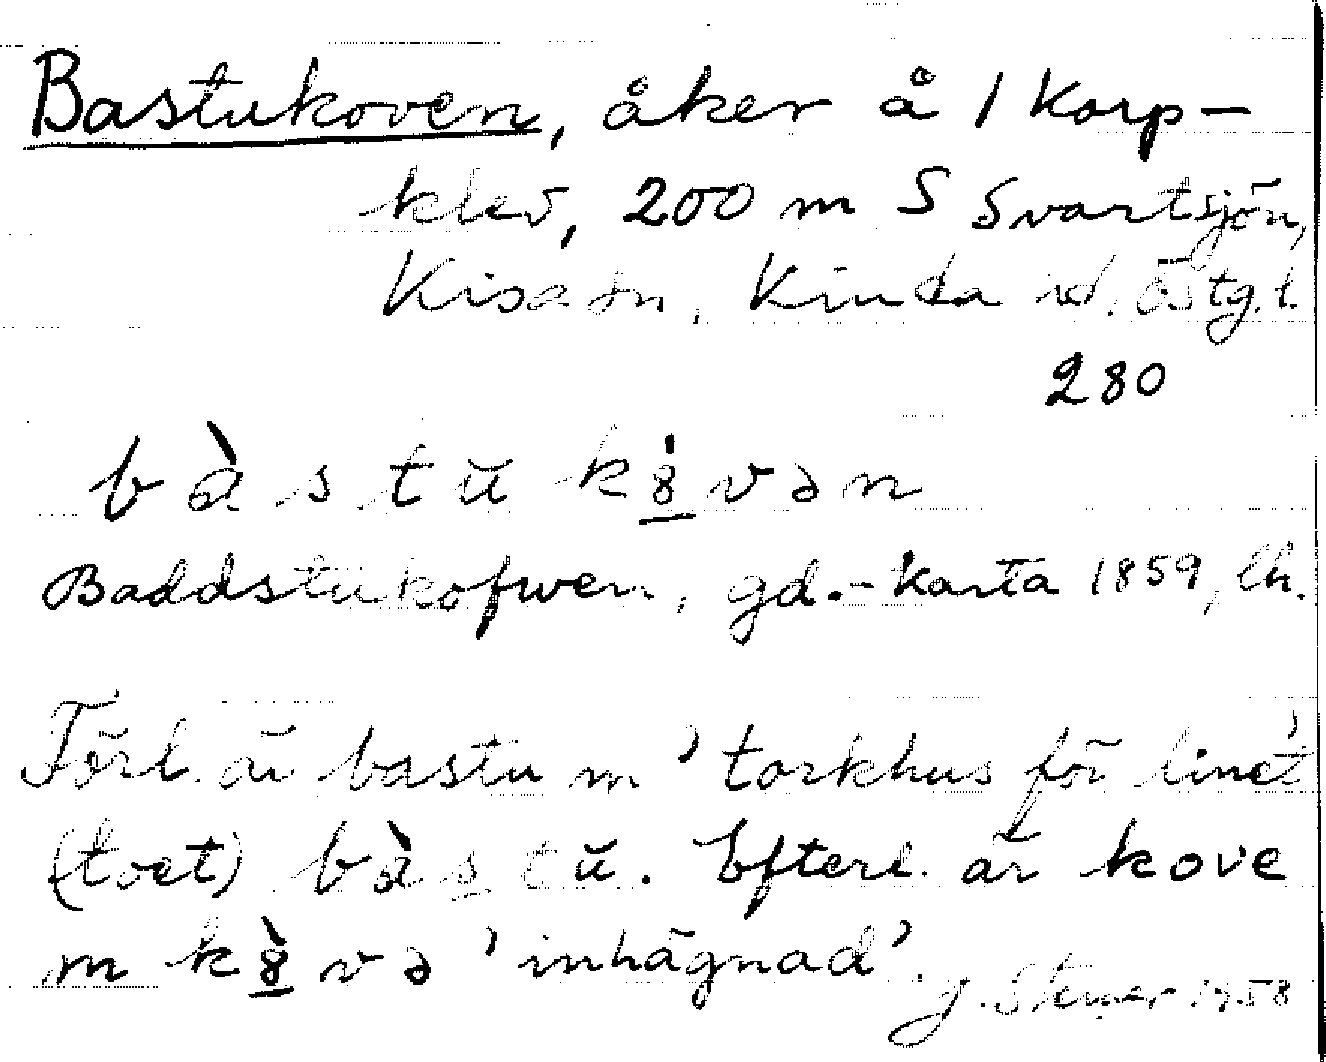 Bastukoven, åker å 1 Korp-
klev, 200 m S Svartsjön,
Kisa sn, Kinda hd. Östg.l.
280
bàstŭkȣ̀vən
Baddstukofwen, gd.-karta 1859, lh.
Förl. är bastu m 'torkhus för linet'
(tvet) bàstŭ. Efterl. är kove
m kȣ̀və 'inhägnad'.
1958